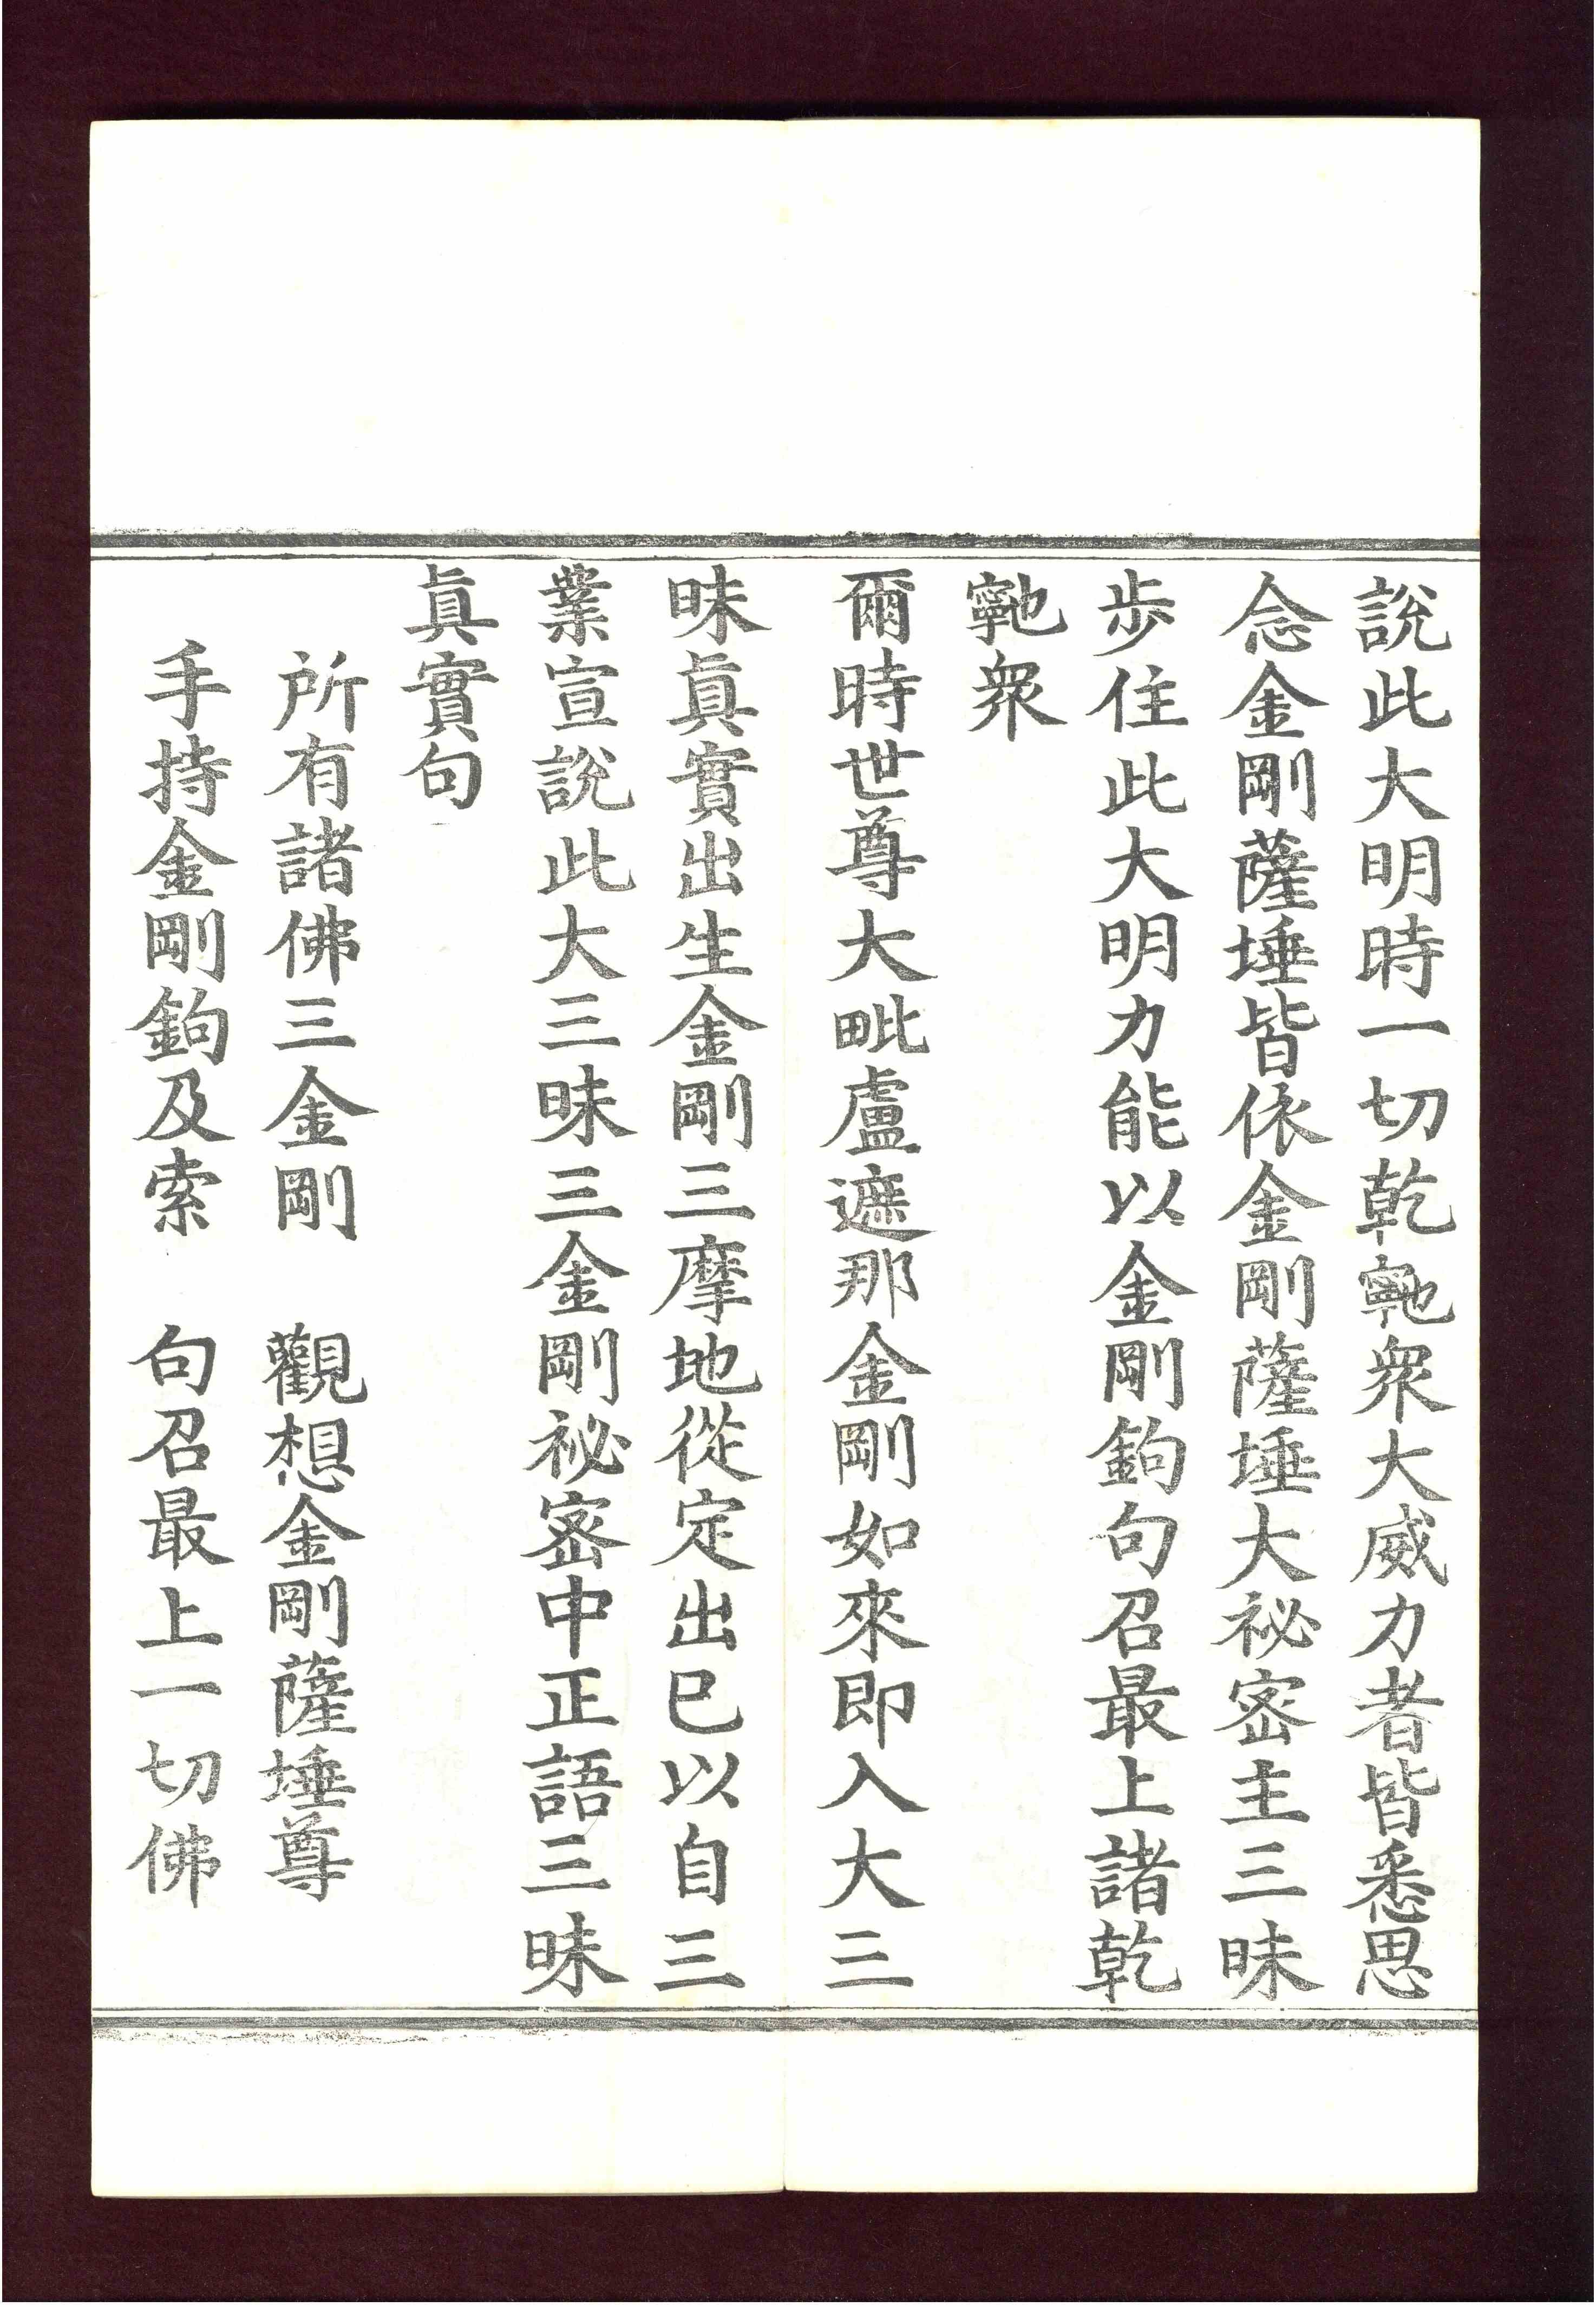 說此大明時一切乾𩇕衆大威力者皆悉思
念金剛薩埵皆依金剛薩埵大祕密主三昧
步住此大明力能以金剛鉤句召最上諸乾
𩇕衆
爾時世尊大毗盧遮那金剛如來即入大三
昧眞實出生金剛三摩地從定出已以自三
業宣說此大三昧三金剛祕密中正語三昧
眞實句
所有諸佛三金剛　觀想金剛薩埵尊
手持金剛鉤及索　句召最上一切佛